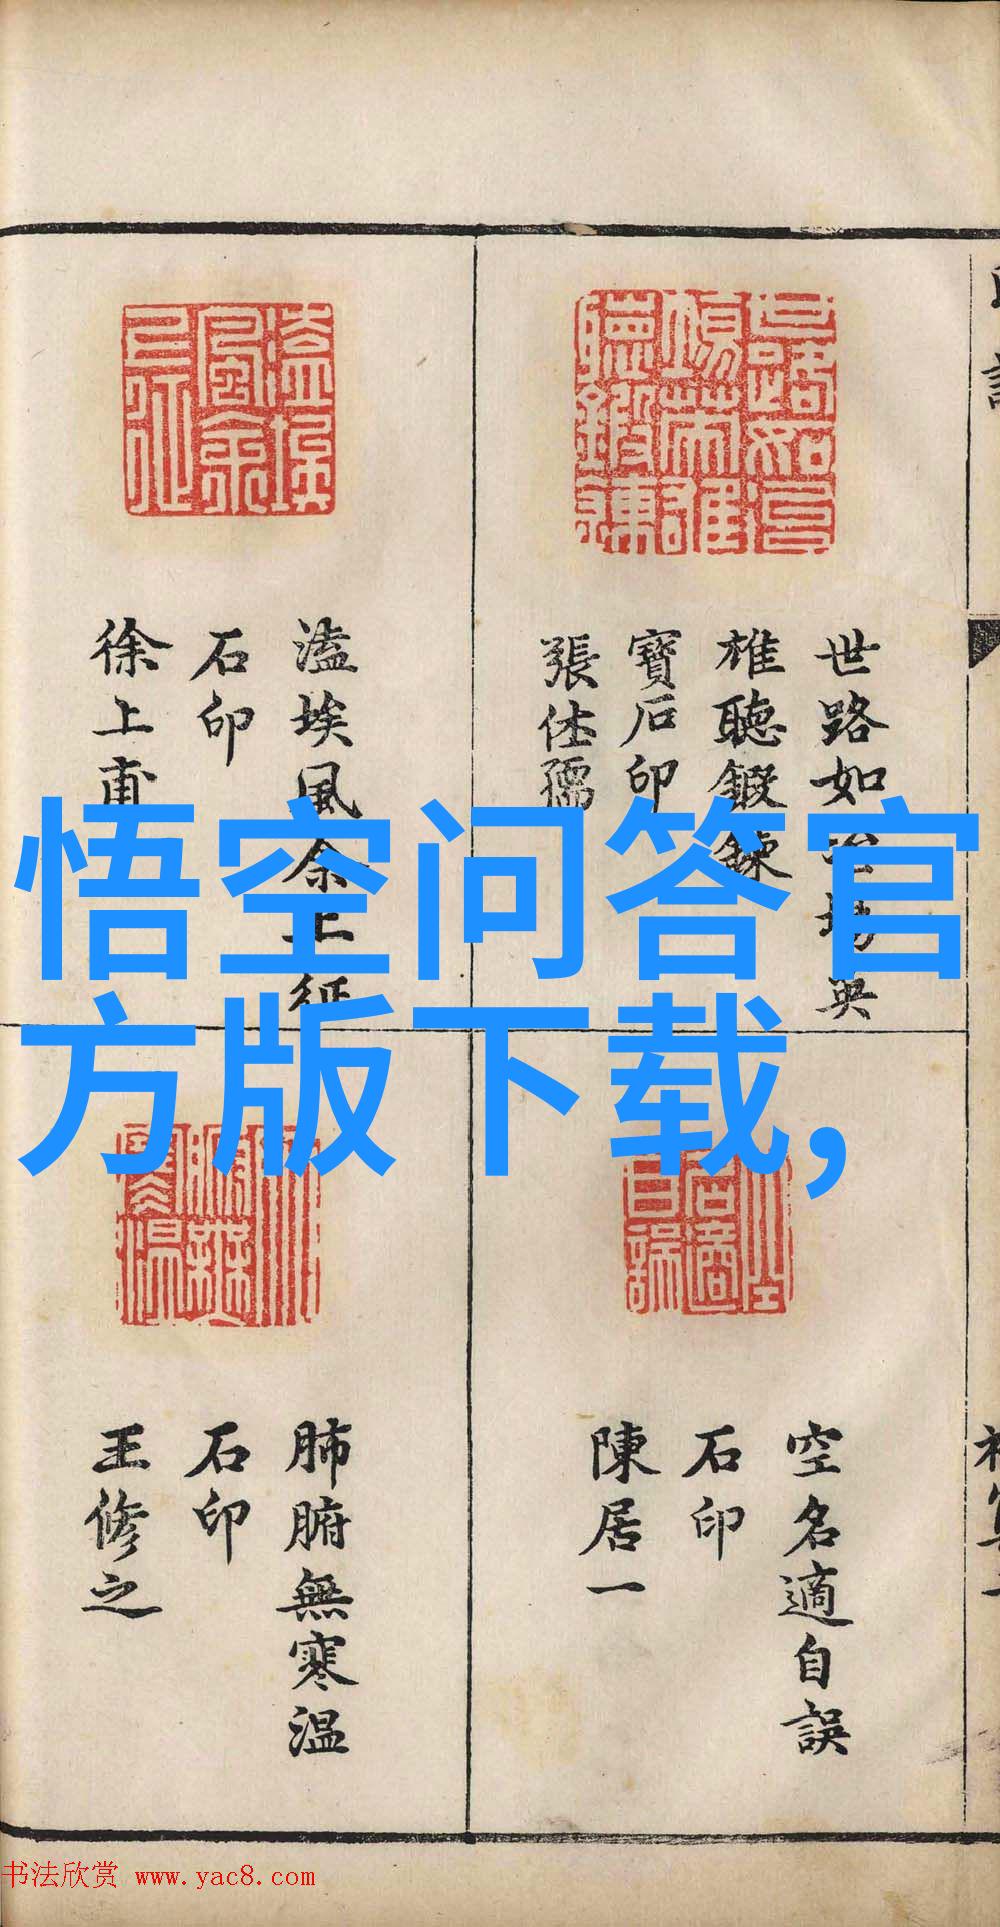 悟空问答官
方版下载,
世路如冶場英
雄聽鍛鍊
寶石印
張仕孺
溘埃風余上征
石印
徐上甫
空名適自誤
石印
陳居一
肺腑無寒温
石印
王修之
书法欣赏 www.yac8.com